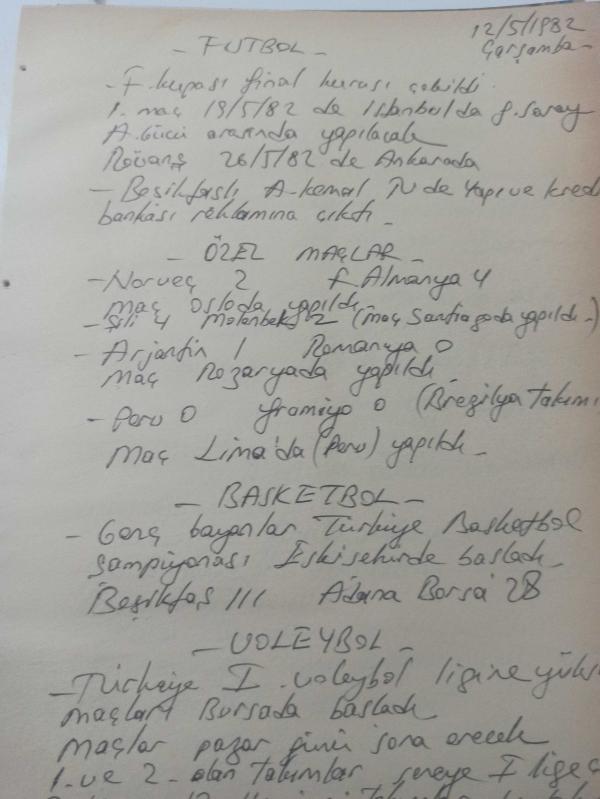 12/5/1982
Çarşamba -
- FUTBOL -
- F. kupası final kurası çekildi.
1. maç 19/5/82 de İstanbul'da g. saray
A. Gücü arasında yapılacak
Rövanş 26/5/82 de Ankarada
- Beşiktaşlı A. Kemal TV de Yapı ve kred
bankası reklamına çıktı -
- ÖZEL MAÇLAR -
- Norveç 2 F. Almanya 4
maç Osloda yapıldı
- Şili 4 Molenbek 2 (maç Santiagoda yapıldı -)
- Arjantin 1 Romanya 0
Maç Rozaryada yapıldı
- Peru 0 Gramiyo 0 (Brezilya takımı
Maç Lima'da (Peru) yapıldı -
- BASKETBOL -
- Genç bayanlar Türkiye Basketbol
şampiyonası Eskişehirde başladı -
Beşiktaş 111 Adana Borsa 28
- VOLEYBOL -
- Türkiye I. voleybol ligine yüks
maçları Bursada başladı
Maçlar pazar günü sona erecek
1. ve 2. olan takımlar seneye I lige ç